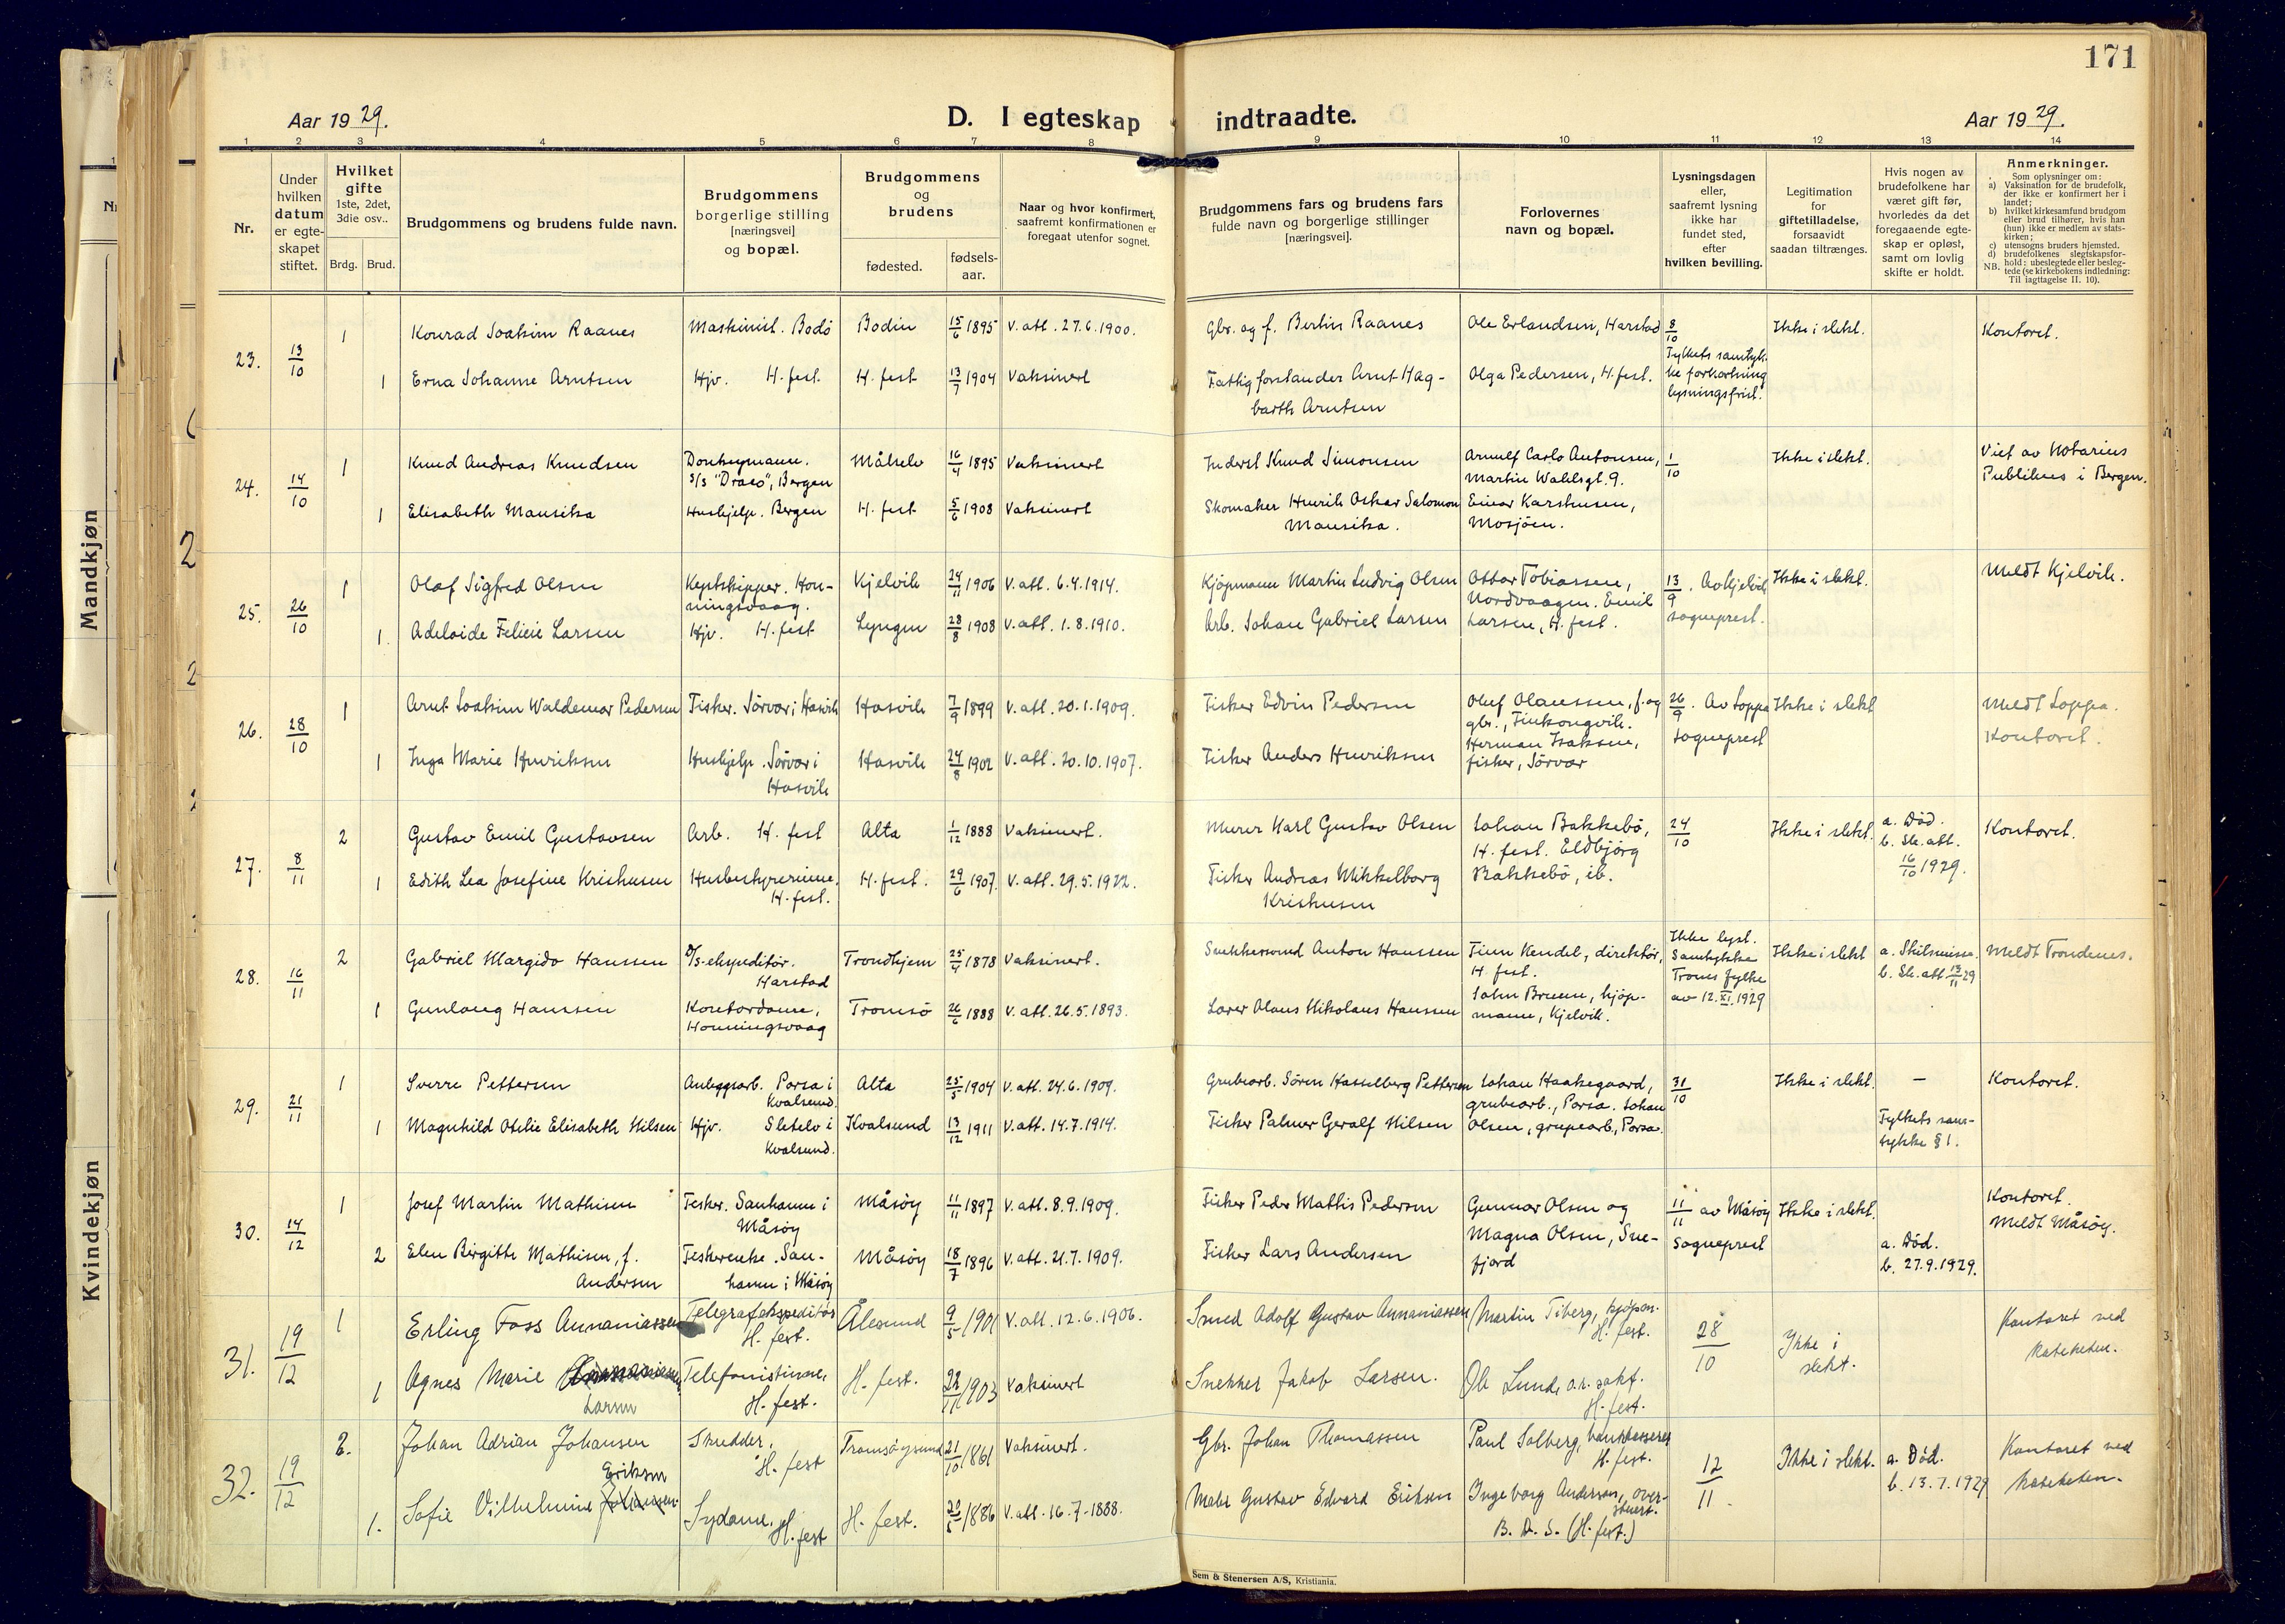 171
Aar 1929.
D. I egteskap indtraadte.
Aar 1929.
1 2 3 4 5 6 7 8 9 10 11 12 13 14
Nr.
Under hvilken datum er egteskapet stiftet.
Hvilket gifte 1ste, 2det, 3die osv..
Brdg. Brud.
Brudgommens og brudens fulde navn.
Brudgommens borgerlige stilling [næringsvei] og bopæl.
Brudgommens og brudens
fødested. fødselsaar.
Naar og hvor konfirmert, saafremt konfirmationen er foregaat utenfor sognet.
Brudgommens fars og brudens fars fulde navn og borgerlige stillinger [næringsvei].
Forlovernes navn og bopæl.
Lysningsdagen eller, saafremt lysning ikke har fundet sted, efter hvilken bevilling.
Legitimation for giftetilladelse, forsaavidt saadan tiltrænges.
Hvis nogen av brudefolkene har været gift før, hvorledes da det foregaaende egteskap er opløst, samt om lovlig skifte er holdt.
Anmerkninger.
Som oplysninger om:
a) Vaksination for de brudefolk, der ikke er konfirmert her i landet;
b) hvilket kirkesamfund brudgom eller brud tilhører, hvis han (hun) ikke er medlem av statskirken;
c) utensogns bruders hjemsted.
d) brudefolkenes slegtskapsforhold: ubeslegtede eller beslegtede (se kirkebokens indledning:
NB. Til iagttagelse II. 10).
Mandkjøn
Kvindekjøn
23. 13/10 1 Konrad Joakim Raanes Maskinist. Bodö Bodin 15/6 1895 V. att. 27.6.1900. Gbr. og f. Bertin Raanes Ole Erlandsen, Harstad 8/10 Ikke i slekt. Kontoret.
Fylkets samtykke forkortning lysningsfrist.
1 Erna Johanne Arntsen Hjv. H. fest. H. fest 13/7 1904 Vaksinert Fattigforstander Arnt Hagbarth Arntsen Olga Pedersen, H. fest.
24. 14/10 1 Knud Andreas Knudsen Donkeymann. s/s "Draco", Bergen Målselv 16/4 1895 Vaksinert Inderst Knud Simonsen Arnulf Carlo Antonsen, Martin Wahlsgt. 9. 1/10 Ikke i slekt. Viet av Notarius Publikus i Bergen.
1 Elisabeth Mansika Hushjelp. Bergen H. fest 5/6 1908 Vaksinert Skomaker Henrik Oskar Salomon Mansika. Einar Karstensen, Mosjöen.
25. 26/10 1 Olaf Sigfred Olsen Kystskipper. Honningsvaag. Kjelvik 24/11 1906 V. att. 6.4.1914. Kjöpmann Martin Ludvig Olsen Ottar Tobiassen, Nordvaagen. Emil Larsen, H. fest. 13/9. Av Kjelvik sogneprest. Ikke i slekt. Meldt Kjelvik.
1. Adelaide Felicie Larsen Hjv. H. fest Lyngen 28/8 1908 V. att. 1.8.1910. Arb. Johan Gabriel Larsen
26. 28/10 1 Arnt Joakim Waldemar Pedersen Fisker. Sörvær i Hasvik Hasvik 7/9 1899 V. att. 20.1.1909. Fisker Edvin Pedersen Oluf Olaussen, f. og gbr., Finkongvik. 26/9. Av Loppa sogneprest Ikke i slekt Meldt Loppa. Kontoret.
1 Inga Marie Henriksen Hushjelp. Sörvær i Hasvik Hasvik 24/8 1902 V. att. 20.10.1907. Fisker Anders Henriksen Herman Isaksen, fisker, Sörvær
27. 8/11 2 Gustav Emil Gustavsen Arb. H. fest Alta 1/12 1888 Vaksinert. Murer Karl Gustav Olsen Johan Bakkebö, H. fest. Eldbjörg Bakkebö, ib. 24/10 Ikke i slekt. a. Död. b. Sk. att. 16/10 1929. Kontoret.
1 Edith Lea Josefine Kristensen Husbestyrerinne. H. fest. H. fest. 29/6 1907 V. att. 29.5.1922. Fisker Andreas Mikkelborg Kristensen
28. 16/11 2 Gabriel Margido Hanssen D/s-ekspeditör. Harstad Trondhjem 25/4 1878 Vaksinert. Snekkersvend Anton Hanssen Finn Kendel, direktör, H. fest. Ikke lyst. Samtykke Troms fylke av 12.XI.1929 Ikke i slekt a. Skilsmisse. b. Sk. att 13/11 29 Meldt Trondenes.
1 Gunlaug Hanssen Kontordame, Honningsvaag Tromsö 26/6 1888 V. att. 26.5.1893. Lærer Olaus Nikolaus Hanssen John Bruun, kjöpmann, Kjelvik.
29. 21/11 1 Sverre Pettersen Anleggsarb. Porsa i Kvalsund. Alta 25/5 1904 V. att. 24.6.1909. Grubearb. Sören Hasselberg Pettersen Johan Haakegaard, grubearb., Porsa. Johan Olsen, grupearb., Porsa. 31/10 Ikke i slekt. – Kontoret.
1 Magnhild Otelie Elisabeth Nilsen Hjv. Sletelv i Kvalsund. Kvalsund 13/12 1911 V. att. 14.7.1914. Fisker Palmer Geralf Nilsen Fylkets samtykke § 1.
30. 14/12 1 Josef Martin Mathisen Fisker. Sanhamn i Måsöy Måsöy 11/11 1897 V. att. 8.9.1909. Fisker Peder Mathis Pedersen Gunnar Olsen og Magna Olsen, Snefjord 11/11 av Måsöy sogneprest Ikke i slekt. Kontoret. Meldt Måsöy.
2 Elen Birgitte Mathisen, f. Andersen Fiskerenke. Sanhamn i Måsöy Måsöy 18/7 1896 V. att. 21.7.1909. Fisker Lars Andersen a. Död. b. 27.9.1929.
31. 19/12 1 Erling Foss Annaniassen Telegrafekspeditör H. fest. Ålesund 9/5 1901 V. att. 12.6.1906. Smed Adolf Gustav Annaniassen Martin Tiberg, kjöpm. H. fest. 28/10 Ikke i slekt. Kontoret ved kateketen.
1 Agnes Marie Larsen Telefonistinne, H. fest. H. fest. 1903 Vaksinert Snekker Jakob Larsen. Ole Lund, o.r. sakf. H. fest.
32. 19/12 2. Johan Adrian Johansen Skredder, H. fest Tromsöysund 21/10 1861 Vaksinert. Gbr. Johan Thomassen Paul Solberg, bankkasserer H. fest. 12/11. Ikke i slekt. a. Död. b. 13.7.1929 Kontoret ved kateketen.
1. Sofie Vilhelmine Eriksen Sydame. H. fest H. fest. 1886 V. att. 16.7.1888. Maler Gustav Edvard Eriksen Ingeborg Anderson, overstuert. B. D. S. (H. fest.)
Sem & Stenersen A/S, Kristiania.